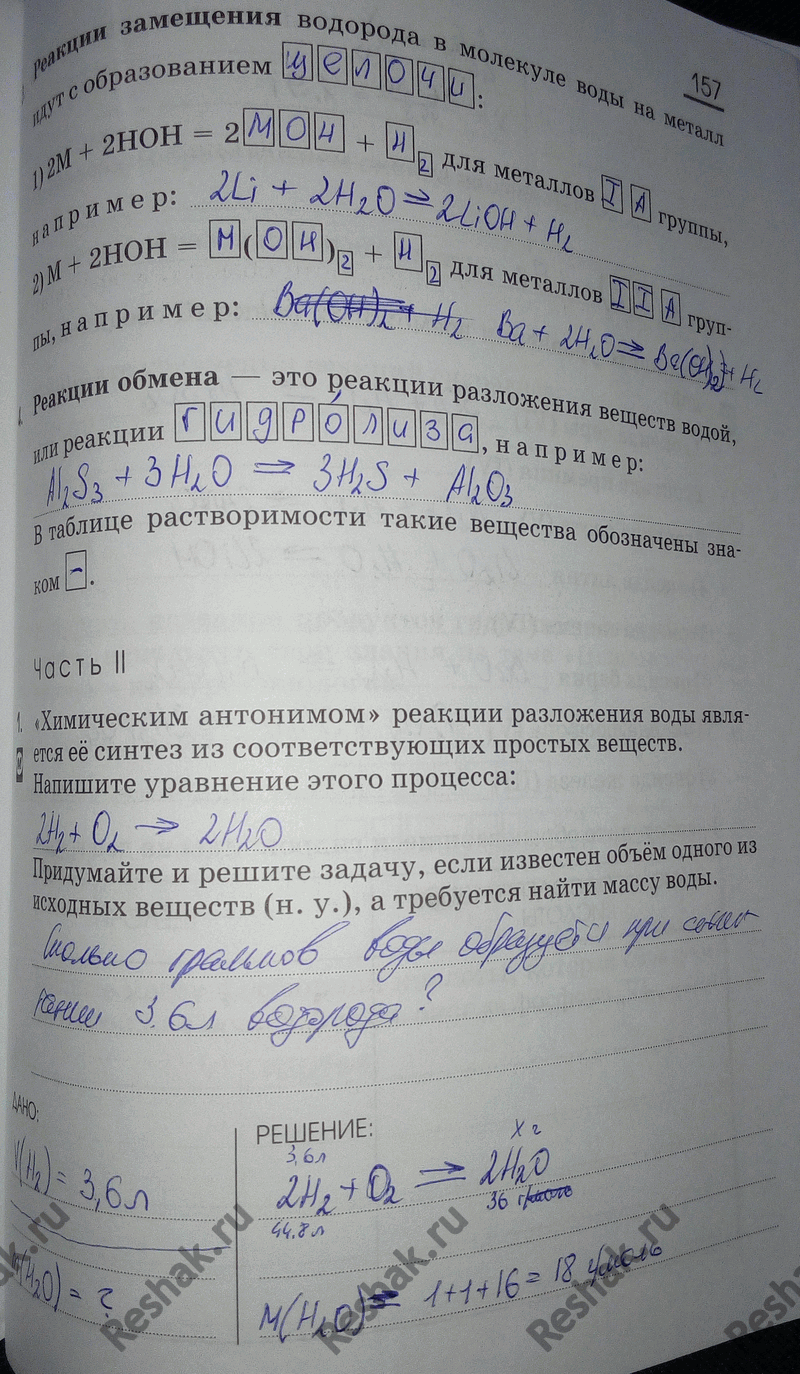 157
Реакции замещения водорода в молекуле воды на металл
идут с образованием щелочи:
1) 2M + 2HOH = 2 MOH + H2 для металлов I A группы,
например: 2Li + 2H2O = 2LiOH + H2
2) M + 2HOH = M(OH)2 + H2 для металлов II A груп-
пы, например: Ba(OH)2 + H2 Ba + 2H2O = Ba(OH)2 + H2
Реакции обмена — это реакции разложения веществ водой,
или реакции гидролиза, например:
Al2S3 + 3H2O = 3H2S + Al2O3
В таблице растворимости такие вещества обозначены зна-
ком –.
Часть II
1. «Химическим антонимом» реакции разложения воды явля-
ется её синтез из соответствующих простых веществ.
Напишите уравнение этого процесса:
2H2 + O2 → 2H2O
Придумайте и решите задачу, если известен объём одного из
исходных веществ (н. у.), а требуется найти массу воды.
Сколько граммов воды образуется при
3,6л водорода?
ДАНО:
V(H2) = 3,6л
m(H2O) = ?
РЕШЕНИЕ:
3,6л X г
2H2 + O2 = 2H2O
44,8 л 36 г
M(H2O) = 1+1+16 = 18 г/моль
Reshak.ru
Reshak.ru
Reshak.ru